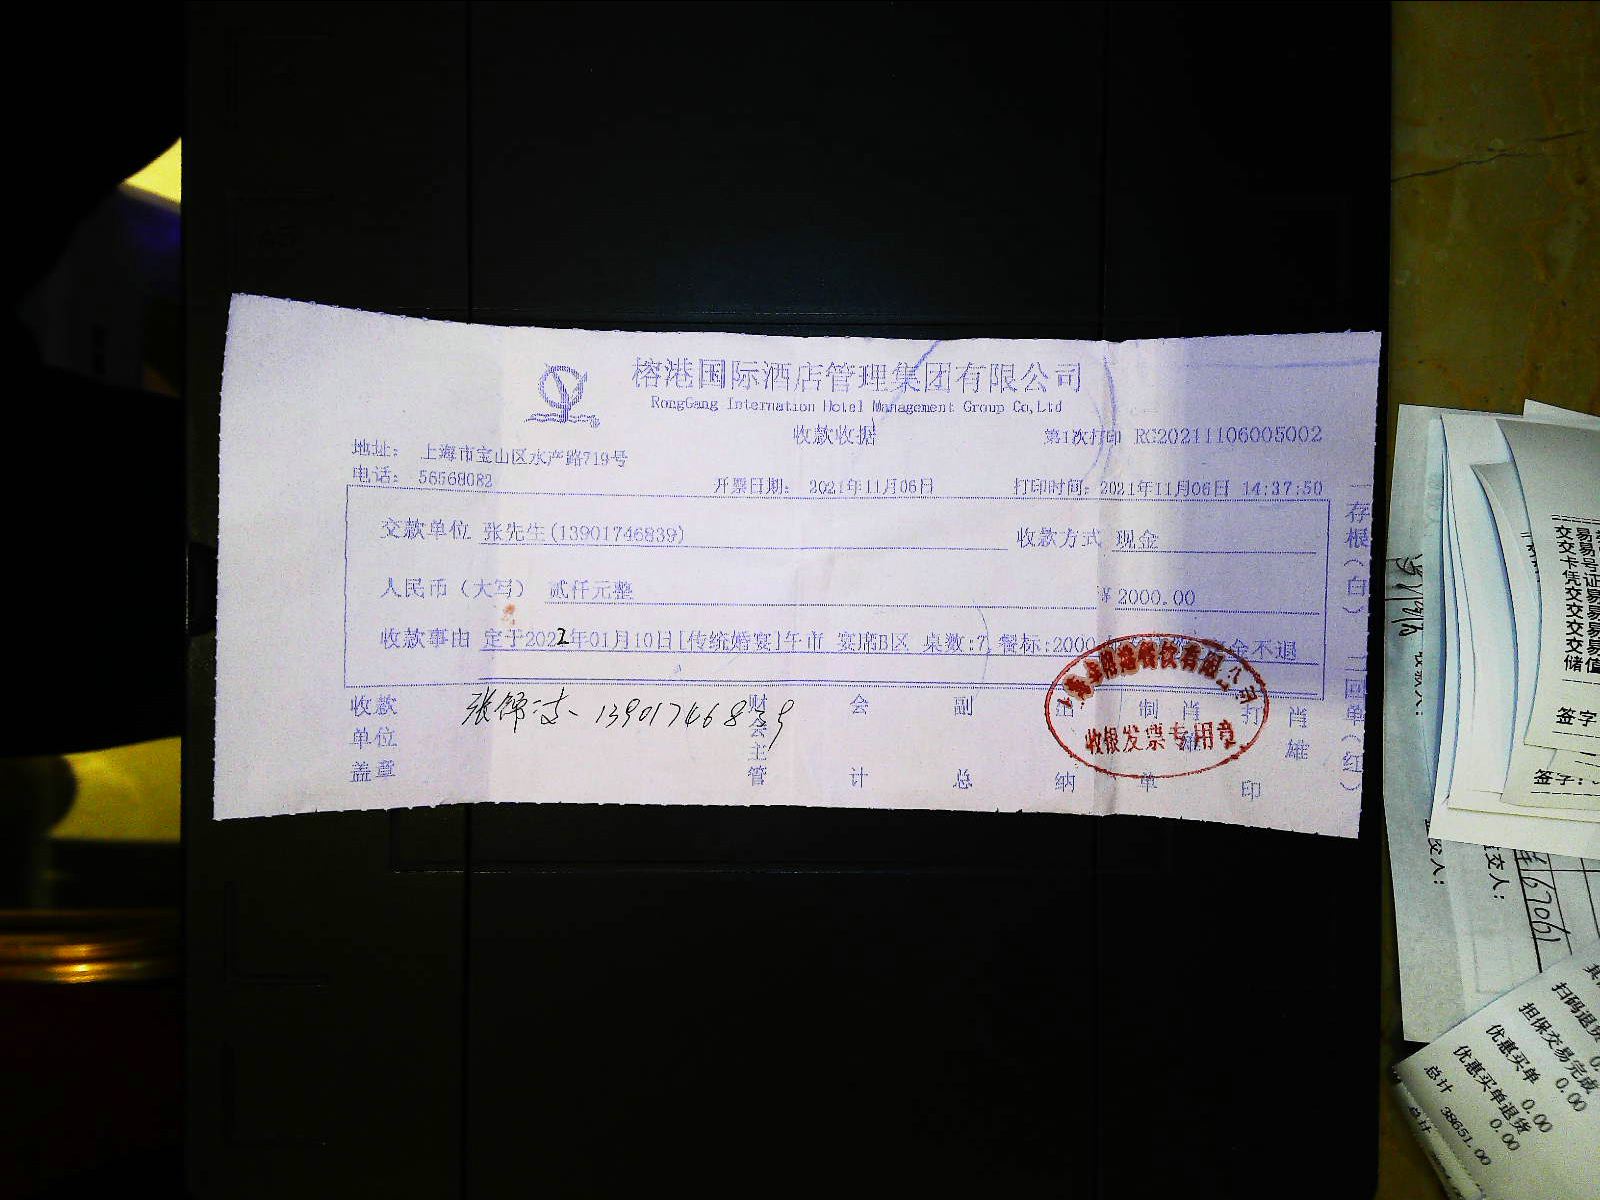 榕港国际酒店管理集团有限公司
RongGang Internation Hotel Management Group Co,Ltd
收款收据
第1次打印 RC20211106005002
地址： 上海市宝山区水产路719号
电话： 56568082
开票日期： 2021年11月06日
打印时间：2021年11月06日 14:37:50
交款单位 张先生(13901746839)
收款方式 现金
人民币（大写） 贰仟元整
¥ 2000.00
收款事由 定于2022年01月10日[传统婚宴]午市 宴席B区 桌数:7, 餐标:2000 金不退
收款单位盖章
张 13901746839
财会主管
会计
副总
出纳
制单 肖雄
打印 肖雄
收银发票专用章
一存根（白）二回单（红）
签字
签子：
交人：
交人：
67061
扫码退货
担保交易完成 0.00
优惠买单 0.00
优惠买单退货 0.00
总计 38651.00
总计